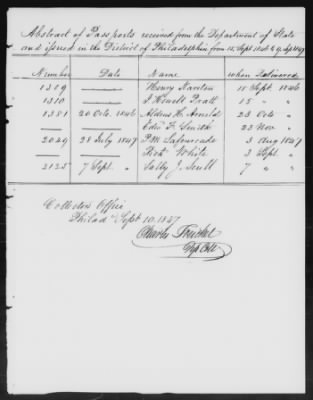 Abstract of Passports received from the Department of State
and issued in the District of Philadelphia from 15 Sept 1846 to 9 Sept 1847
Number Date Name when Delivered
1309 Henry 15 Sept. 1846
1310 J. Hewitt Pratt 15 "
1381 20 Oct. 1846 Aldrin H. Arnolds 23 Oct "
Edw. F. Smith 23 Nov "
2029 28 July 1847 P.M. Lafourcade 3 Aug 1847
Rich White 3 Sept. "
2125 7 Sept. " Sally J. Scull 7 "
Collectors Office
Philad Sept 10. 1847
Charles
Dep Coll